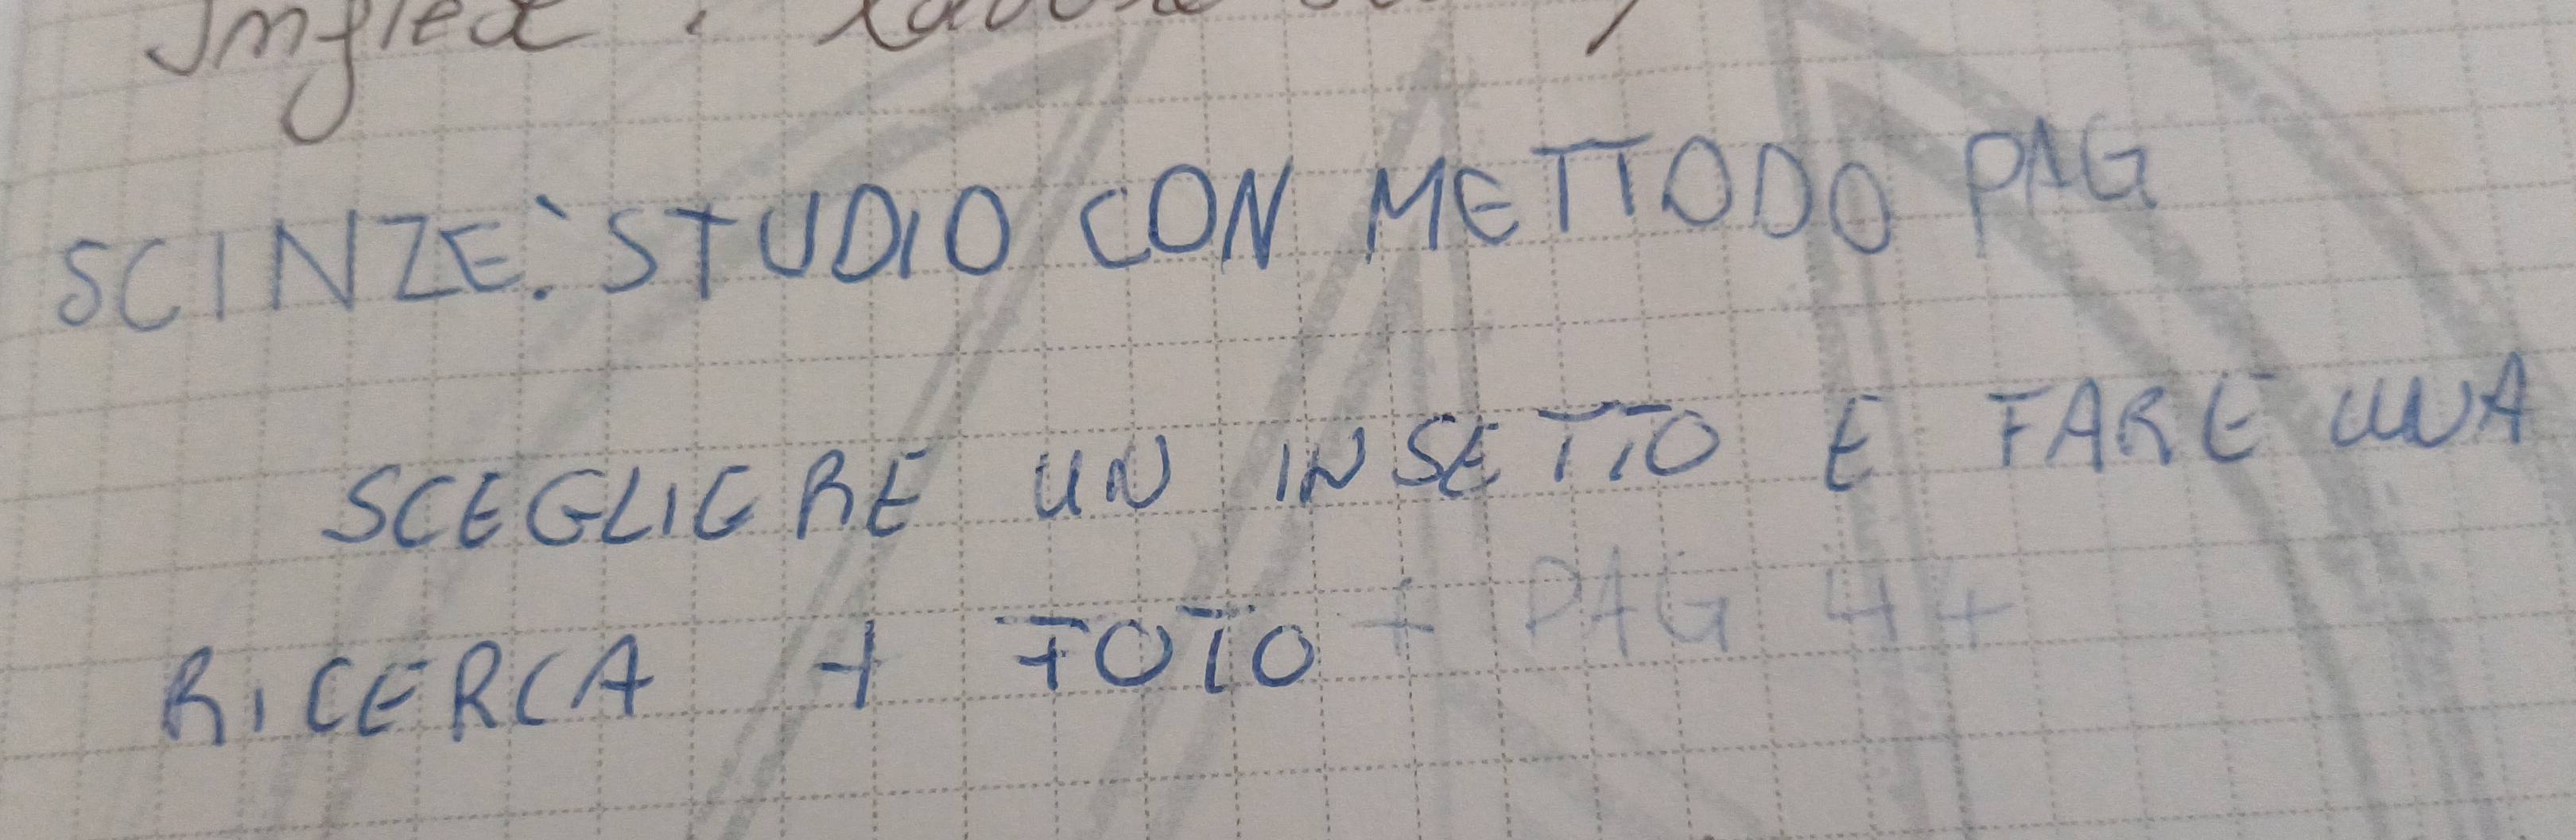 Inglese :
SCINZE: STUDIO CON METTODO PAG
SCEGLIERE UN INSETTO E FARE UNA
RICERCA + FOTO + PAG 44